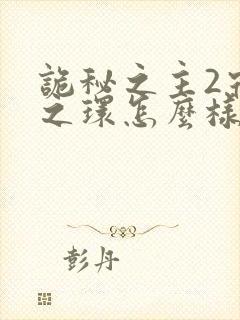 詭秘之主2宿
之環怎麼樣
彭丹